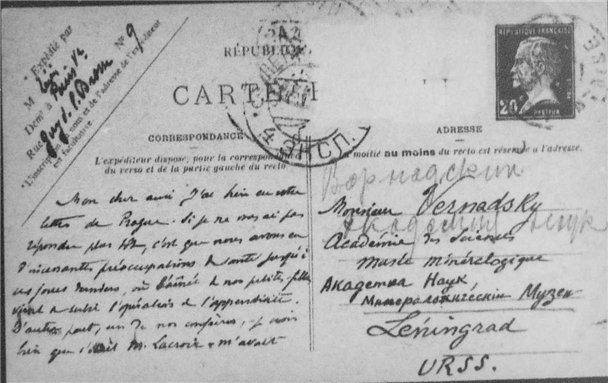 Expédié par
M
Demt à Paris Ve
Rue N° 9
*L'inscription du nom et de l'adresse de l'expéditeur
est facultative
RÉPUBLIQUE FRANÇAISE
20c
PASTEUR
RÉPUBLI
CARTE
ЭКСП.
CORRESPONDANCE
L'expéditeur dispose, pour la correspondan
du verso et de la partie gauche du recto.
ADRESSE
a moitié au moins du recto est réservée à l'adresse.
Mon cher ami J'ai bien eu votre
lettre de Prague. Si je ne vous ai pas
répondu plus tôt, c'est que nous avons eu
d'incessantes préoccupations de santé jusqu'à
ces jours derniers, où l'aînée de nos petites filles
vient de subir l'opération de l'appendicite.
D'autre part, un de nos confrères, je crois
bien que c'était M. Lacroix, m'avait
Monsieur Vernadsky
Académie des Sciences
Musée minéralogique
Академия Наук
Минералогический Музей
Léningrad
URSS.